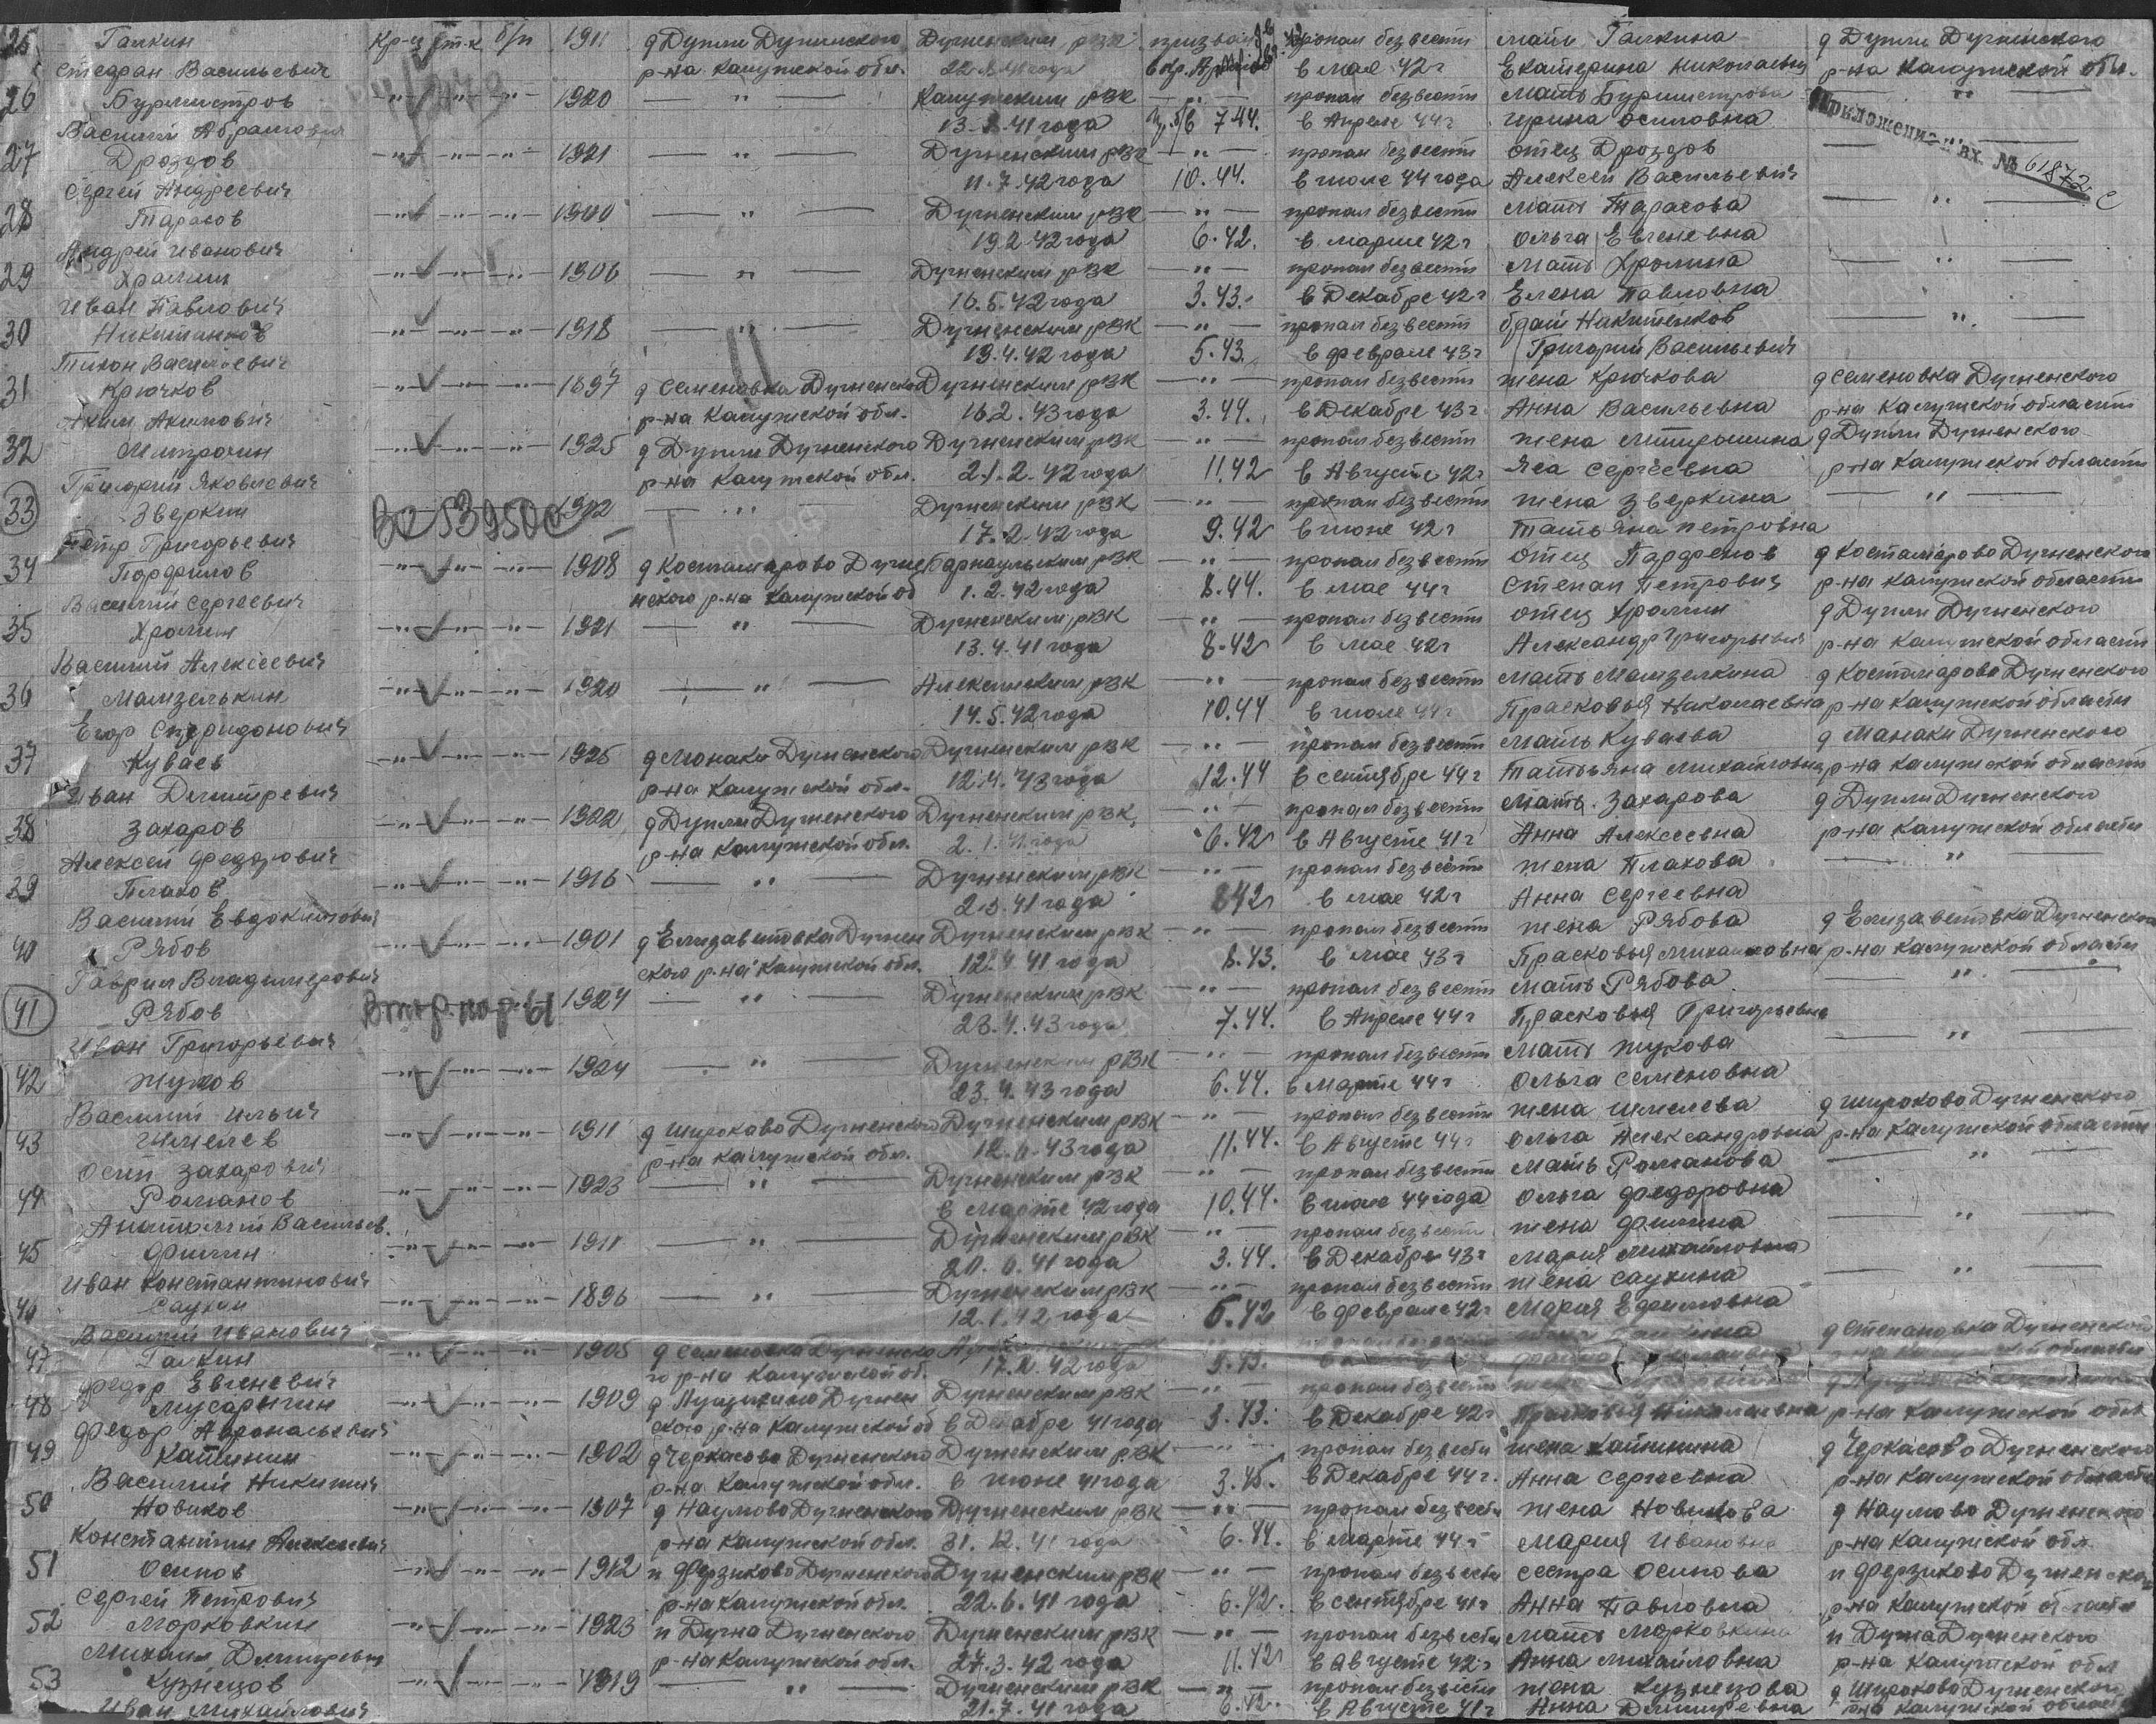 25 Галкин кр-ц ст-к б/п 1911 д Дупли Дугнинского Дугненским рвк пропал без вести мать Галкина д Дупли Дугнинского
Степан Васильевич р-на Калужской обл. 22.8.41 года в мае 42г Екатерина Николаевна р-на Калужской обл.
26 Бурмистров -"- -"- -"- 1920 — " — Калужским рвк — " — пропал без вести мать Бурмистрова — " —
Василий Абрамович 13.8.41 года 7.44. в Апреле 44г Ирина Осиповна
Приложение к вх. № 61872 с
27 Дроздов -"- -"- -"- 1921 — " — Дугненским рвк — " — пропал без вести отец Дроздов — " —
Сергей Андреевич 11.7.42 года 10.44. в июле 44 года Алексей Васильевич
28 Тарасов -"- -"- -"- 1900 — " — Дугненским рвк — " — пропал без вести мать Тарасова — " —
Андрей Иванович 19.2.42 года 6.42. в марте 42г Ольга Евгеневна
29 Хромин -"- -"- -"- 1906 — " — Дугненским рвк — " — пропал без вести мать Хромина — " —
Иван Павлович 16.5.42 года 3.43. в Декабре 42г Елена Павловна
30 Никитенков -"- -"- -"- 1918 — " — Дугненским рвк — " — пропал без вести брат Никитенков — " —
Тихон Васильевич 13.4.42 года 5.43. в феврале 43г Григорий Васильевич
31 Крючков -"- -"- -"- 1897 д Семеновка Дугненского Дугненским рвк — " — пропал без вести жена Крючкова д Семеновка Дугненского
Аким Акимович р-на Калужской обл. 16.2.43 года 3.44. в Декабре 43г Анна Васильевна р-на Калужской области
32 -"- -"- -"- 1925 д Дупли Дугненского Дугненским рвк — " — пропал без вести жена д Дупли Дугненского
Григорий Яковлевич р-на Калужской обл. 21.2.42 года 11.42 в Августе 42г Сергеевна р-на Калужской области
33 Зверкин 1902 — " — Дугненским рвк — " — пропал без вести жена Зверкина — " —
Петр Григорьевич 17.2.42 года 9.42 в июне 42г Татьяна Петровна
34 Парфилов -"- -"- -"- 1908 д Костомарово Дугне Барнаульским рвк — " — пропал без вести отец Парфенов д Костомарово Дугненского
Василий Сергеевич нского р-на Калужской об 1.2.42 года 8.44. в мае 44г Степан Петрович р-на Калужской области
35 Хромин -"- -"- -"- 1921 — " — Дугненским рвк — " — пропал без вести отец Хромин д Дупли Дугненского
Василий Алексеевич 13.4.41 года 8.42 в мае 42г Александр Григорьевич р-на Калужской области
36 Мамзелькин -"- -"- -"- 1920 — " — Алексинским рвк — " — пропал без вести мать Мамзелкина д Костомарово Дугненского
Егор Спиридонович 14.5.42 года 10.44 в июле 44г Прасковья Николаевна р-на Калужской области
37 Куваев -"- -"- -"- 1925 д Монаки Дугненского Дугненским рвк — " — пропал без вести мать Куваева д Манаки Дугненского
Иван Дмитревич р-на Калужской обл. 12.4.43 года 12.44 в сентябре 44г Татьяна Михайловна р-на Калужской области
38 Захаров -"- -"- -"- 1902 д Дупли Дугненского Дугненским рвк — " — пропал без вести мать Захарова д Дупли Дугненского
Алексей Федорович р-на Калужской обл. 2.1.41 года 6.42 в Августе 41г Анна Алексеевна р-на Калужской области
39 Плахов -"- -"- -"- 1916 — " — Дугненским рвк — " — пропал без вести жена Плахова — " —
Василий Евдокимович 2.5.41 года 8.42 в мае 42г Анна Сергеевна
40 Рябов -"- -"- -"- 1901 д Елизаветовка Дугнен Дугненским рвк — " — пропал без вести жена Рябова д Елизаветовка Дугненского
Гаврил Владимерович ского р-на Калужской обл. 12.4.41 года 8.43. в мае 43г Прасковья Михайловна р-на Калужской области
41 Рябов 1924 — " — Дугненским рвк — " — пропал без вести мать Рябова — " —
Иван Григорьевич 23.4.43 года 7.44. в Апреле 44г Прасковья Григорьевна
42 Жуков -"- -"- -"- 1924 — " — Дугненским рвк — " — пропал без вести мать Жукова — " —
Василий Ильич 23.4.43 года 6.44. в Марте 44г Ольга Семеновна
43 Шмелев -"- -"- -"- 1911 д Широково Дугненского Дугненским рвк — " — пропал без вести жена Шмелева д Широково Дугненского
Осип Захарович р-на Калужской обл. 12.6.43 года 11.44. в Августе 44г Ольга Александровна р-на Калужской области
44 Романов -"- -"- -"- 1923 — " — Дугненским рвк — " — пропал без вести мать Романова — " —
Анатолий Васильев. в Марте 42 года 10.44. в июле 44 года Ольга Федоровна
45 Филин -"- -"- -"- 1911 — " — Дугненским рвк — " — пропал без вести жена Филина — " —
Иван Константинович 20.6.41 года 3.44. в Декабре 43г Мария Михайловна
46 Саухин -"- -"- -"- 1896 — " — Дугненским рвк — " — пропал без вести жена Саухина — " —
Василий Иванович 12.1.42 года 5.42 в феврале 42г Мария Ефимовна
47 Галкин -"- -"- -"- 1905 д Семеновка Дугненско д Степановка Дугненской
Федор Евгеневич го р-на Калужской об. 17.2.42 года
48 Мусорыгин -"- -"- -"- 1909 Дугнен Дугненским рвк — " — пропал без вести
Федор ского р-на Калужской об в Декабре 41 года 3.43. в Декабре 42г Прасковья Николаевна р-на Калужской обл
49 Калинин -"- -"- -"- 1902 д Черкасово Дугненского Дугненским рвк — " — пропал без вести жена Калинина д Черкасово Дугненского
Василий Никитич р-на Калужской обл. в июне 41 года 3.45. в Декабре 44г. Анна Сергеевна р-на Калужской области
50 Новиков -"- -"- -"- 1907 д Наумово Дугненского Дугненским рвк — " — пропал без вести жена Новикова д Наумово Дугненского
Константин Алексеевич р-на Калужской обл. 31.12.41 года 6.44. в Марте 44г Мария Ивановна р-на Калужской обл
51 Осипов -"- -"- -"- 1912 п Ферзиково Дугненского Дугненским рвк — " — пропал без вести сестра Осипова п Ферзиково Дугненского
Сергей Петрович р-на Калужской обл. 22.6.41 года 6.42. в сентябре 41г Анна Павловна р-на Калужской области
52 Морковкин -"- -"- -"- 1923 п Дугна Дугненского Дугненским рвк — " — пропал без вести мать Морковкина п Дугна Дугненского
Михаил Дмитревич р-на Калужской обл. 27.3.42 года 11.42 в августе 42г Анна Михайловна р-на Калужской обл
53 Кузнецов -"- -"- -"- 1919 — " — Дугненским рвк — " — пропал без вести жена Кузнецова д Широково Дугненского
Иван Михайлович 21.7.41 года 6.42. в Августе 41г Анна Дмитревна р-на Калужской области